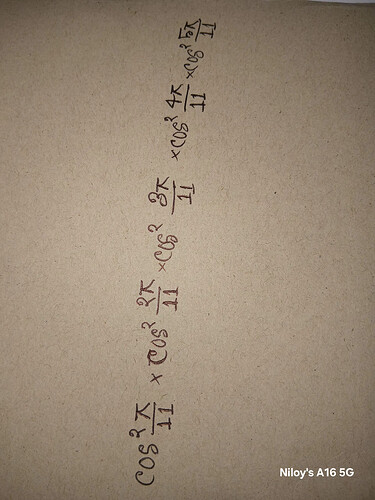 cos² π/11 × cos² 2π/11 × cos² 3π/11 × cos² 4π/11 × cos² 5π/11
Niloy's A16 5G